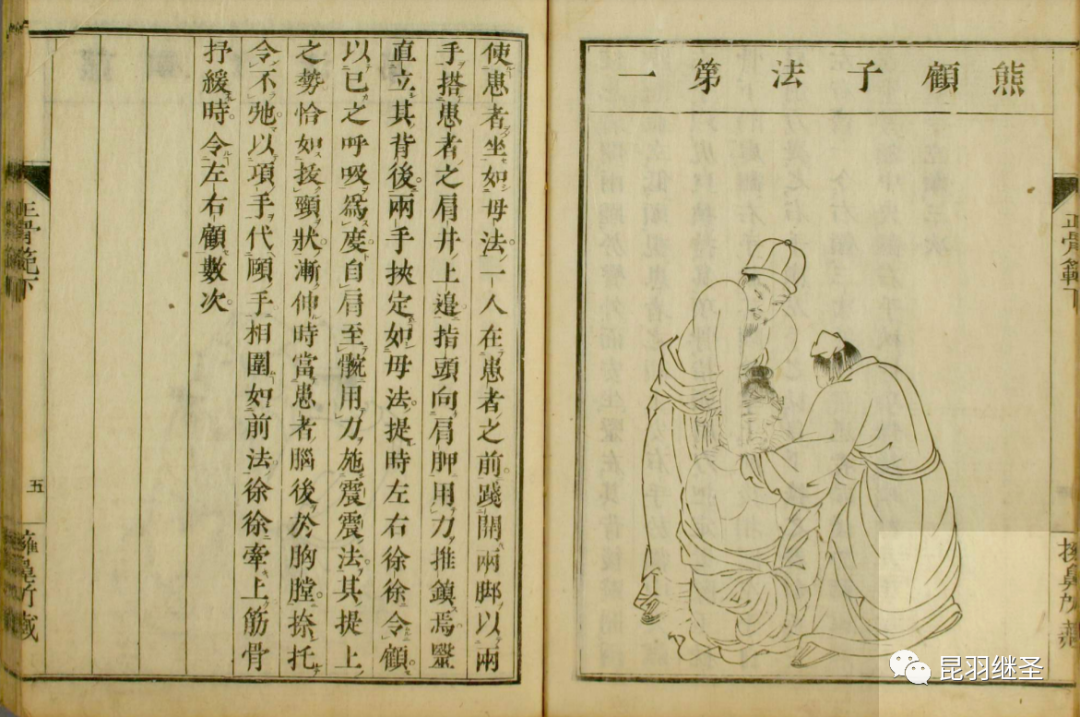 熊顧子法第一
正骨範下
使患者坐如母法一人在患者之前踐開兩脚以兩
手搭患者之肩井上邊指頭向肩胛用力推鎮焉毉
直立其背後兩手挾定如母法提時左右徐徐令顧
以已之呼吸爲度自肩至髖用力施震震法其提上
之勢恰如拔頸狀漸伸時當患者腦後於胸膛捺托
令不弛以項手代頤手相圍如前法徐徐牽上筋骨
抒緩時令左右顧數次
正骨範下
五
昆羽继圣